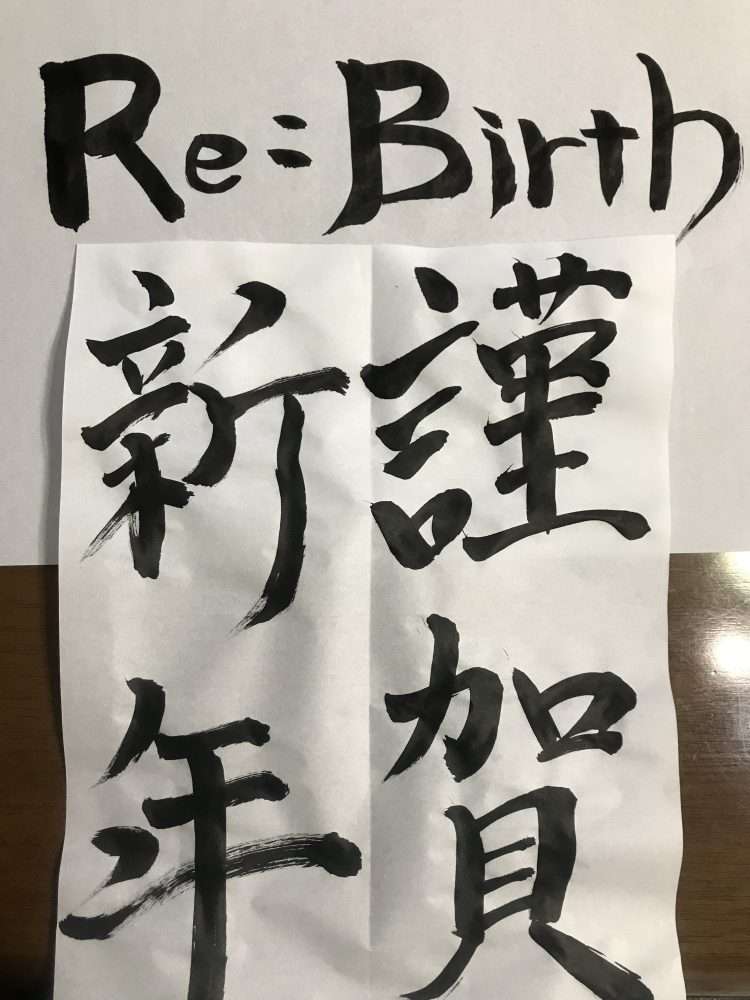 Re:Birth
謹賀
新年